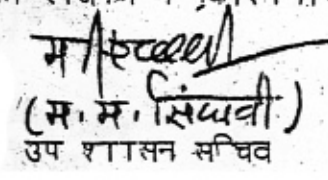 (म. म. सिंघवी)
उप शासन सचिव